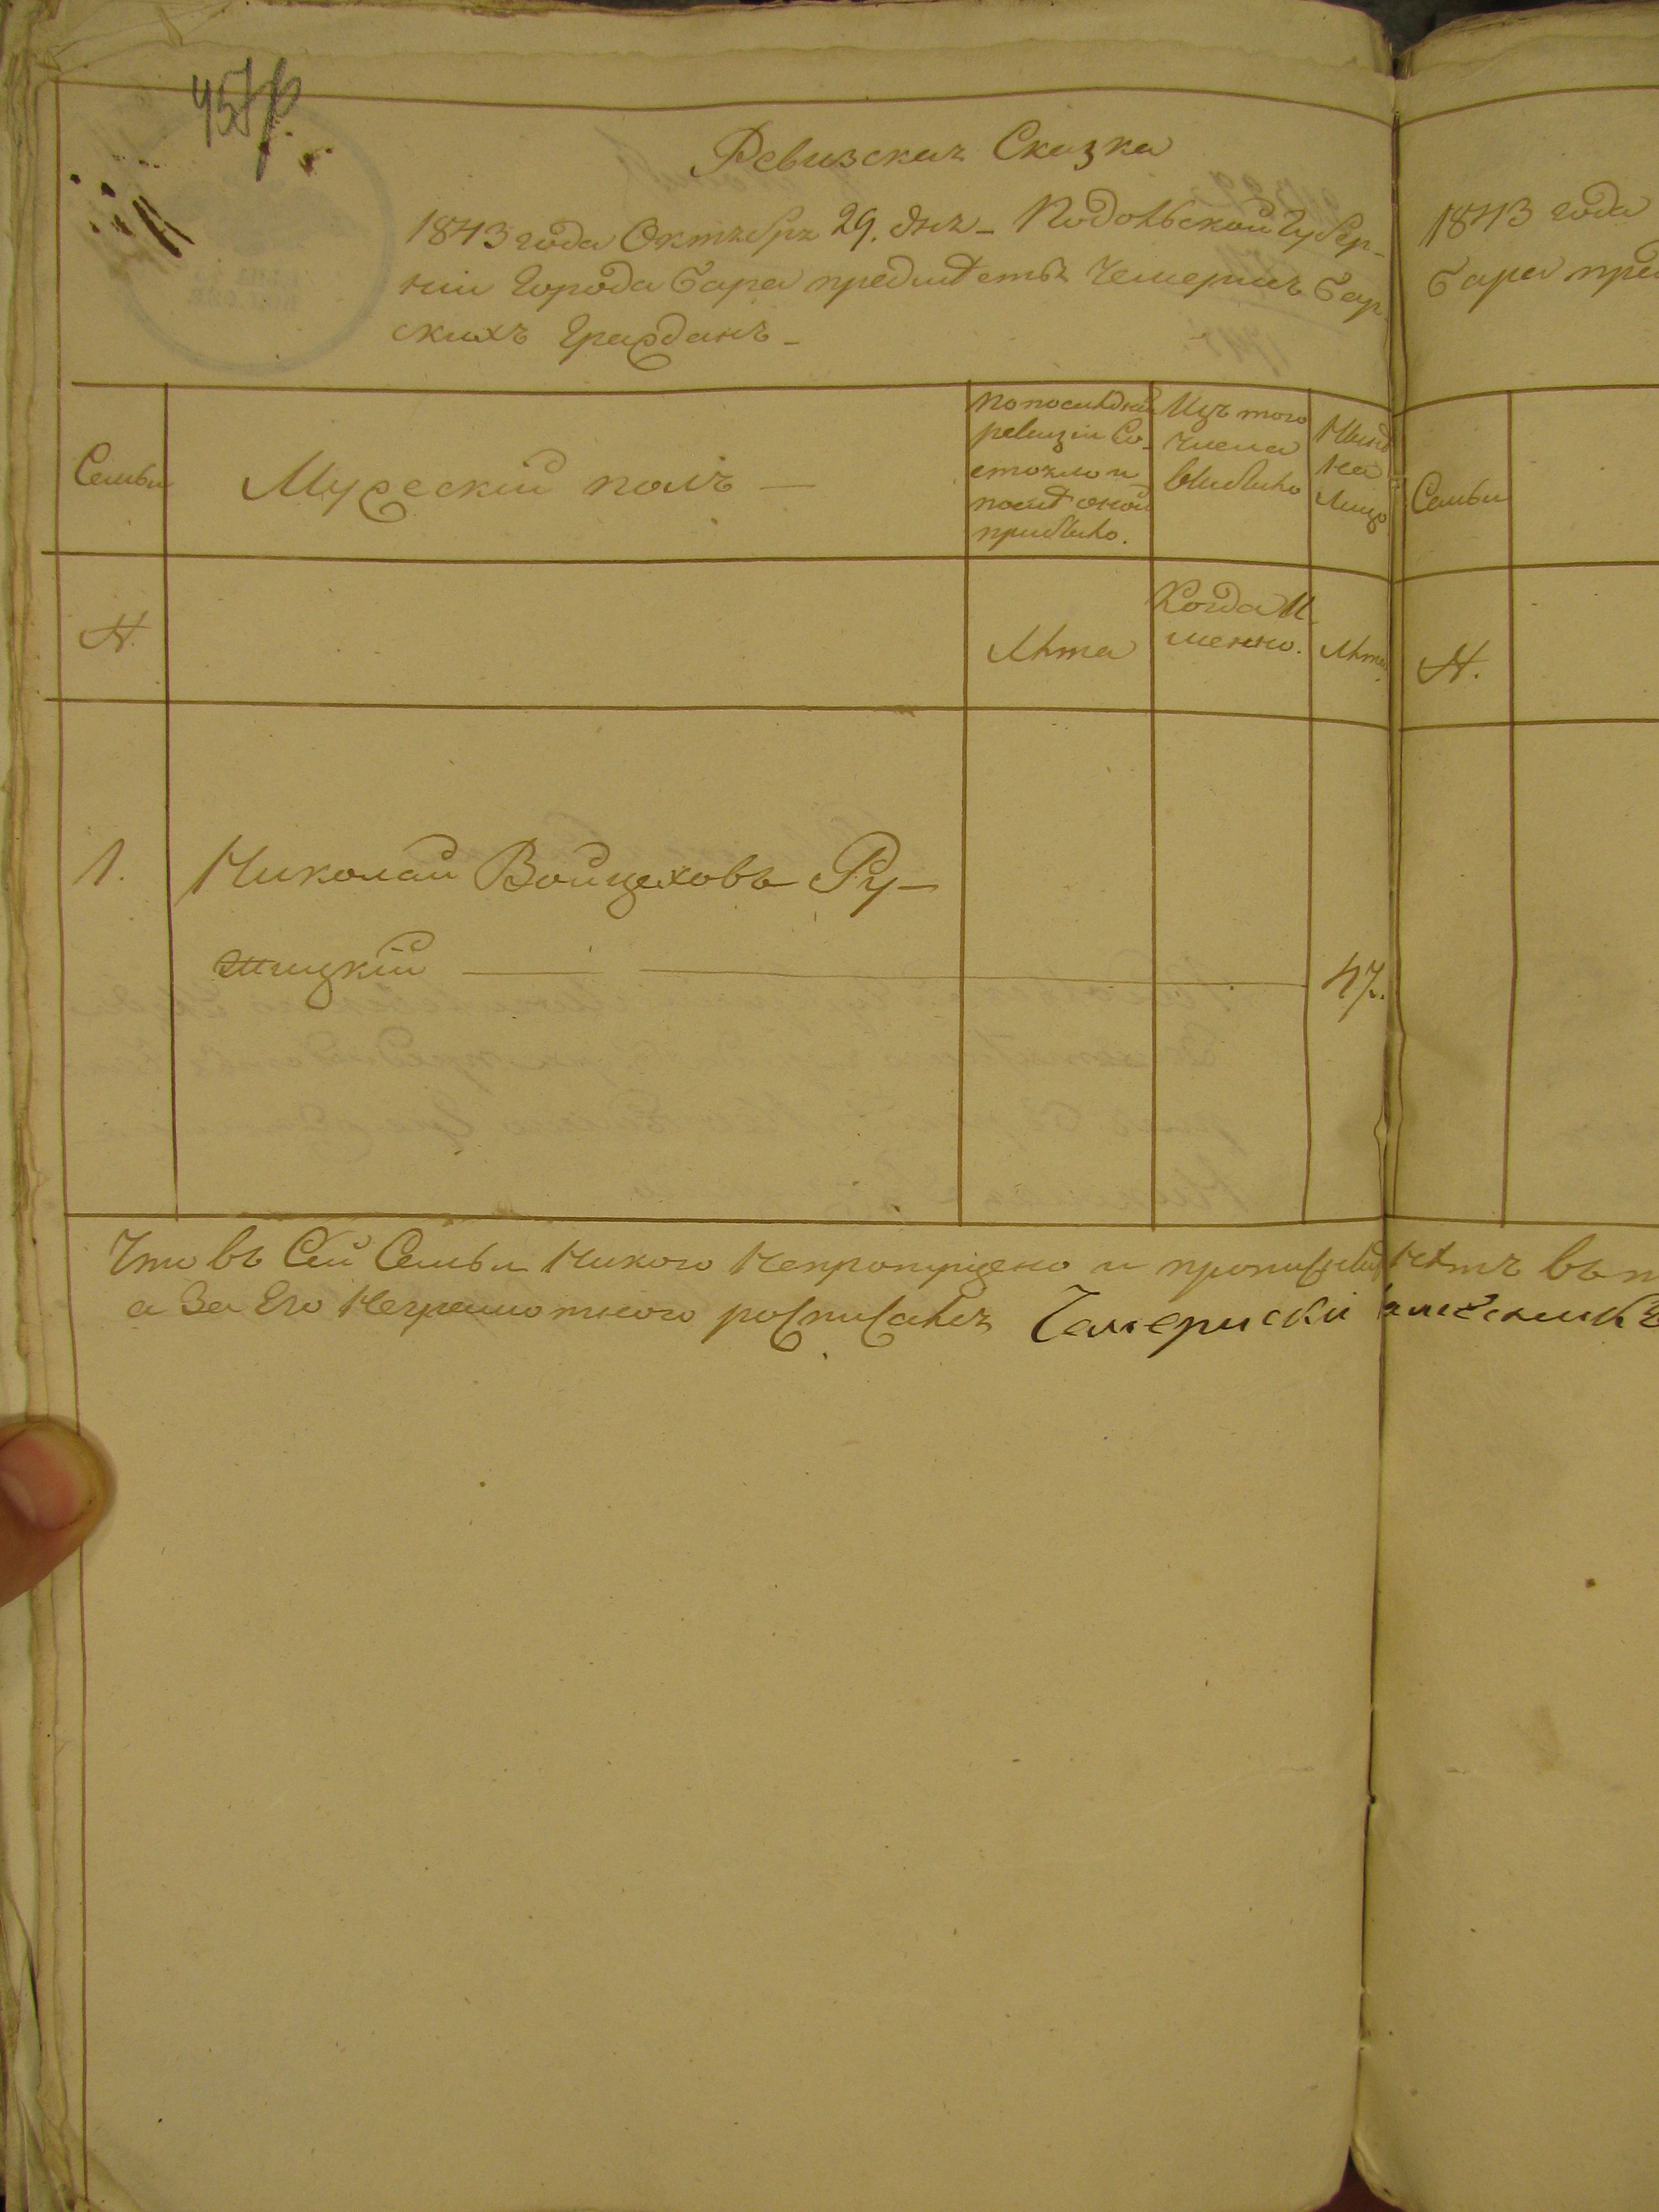 Ревизская Сказка
1843 года Октября 29. дня – Подольской Губер-
ніи Города Бара предмѣстья Чемерисъ Бар-
скихъ Гражданъ –
Семьи
Мужескій полъ —
По последней
ревизіи Со-
стояло и
послѣ оной
прибыло.
Изъ того
числа
выбыло
Нынѣ
на
лицо
N.
Лѣта
Когда И-
менно.
Лѣта
1. Николай Войцеховъ Ру-
жицкій —
47.
Что въ Сей Семьи Никого Непропущено и нѣтъ въ
а За Его Неграмотного росписался
1843 года
Бара
Семьи
N.